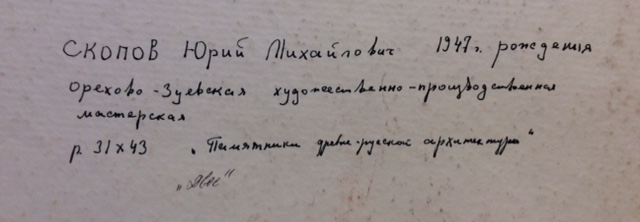 СКОПОВ Юрий Михайлович 1947г. рождения
Орехово-Зуевская художественно-производственная
мастерская
р. 31х43 „Памятники древне-русской архитектуры“